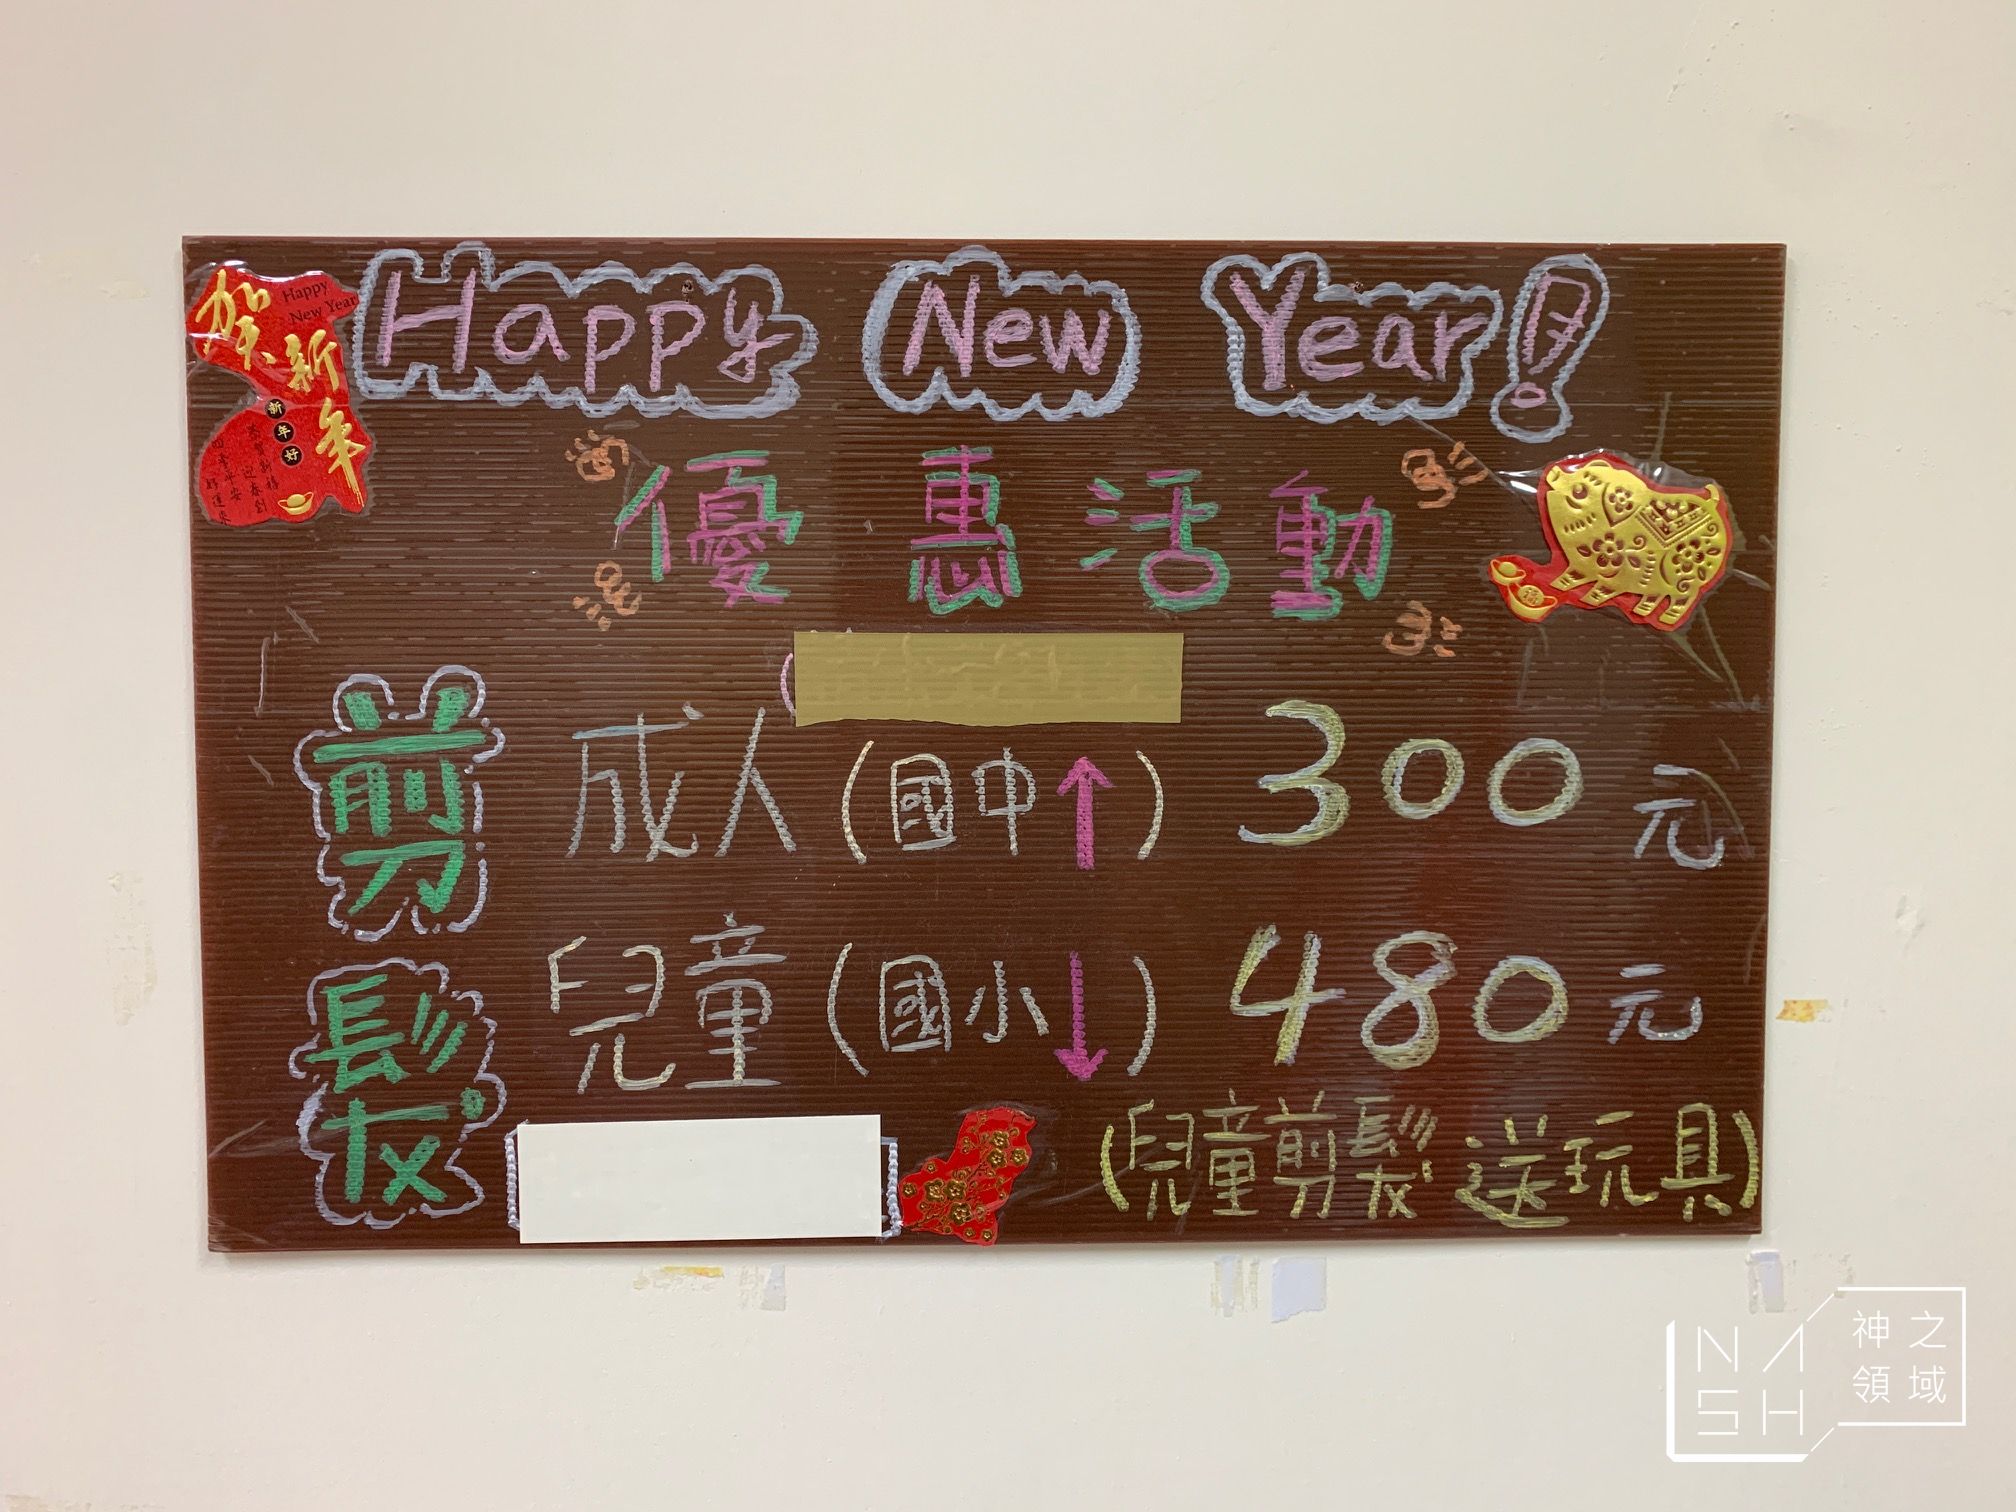 Happy New Year!
賀新年
Happy
New Year
新年好
四季平安
優惠活動
剪髮
成人(國中↑) 300元
兒童(國小↓) 480元
(兒童剪髮送玩具)
NASH
神之
領域